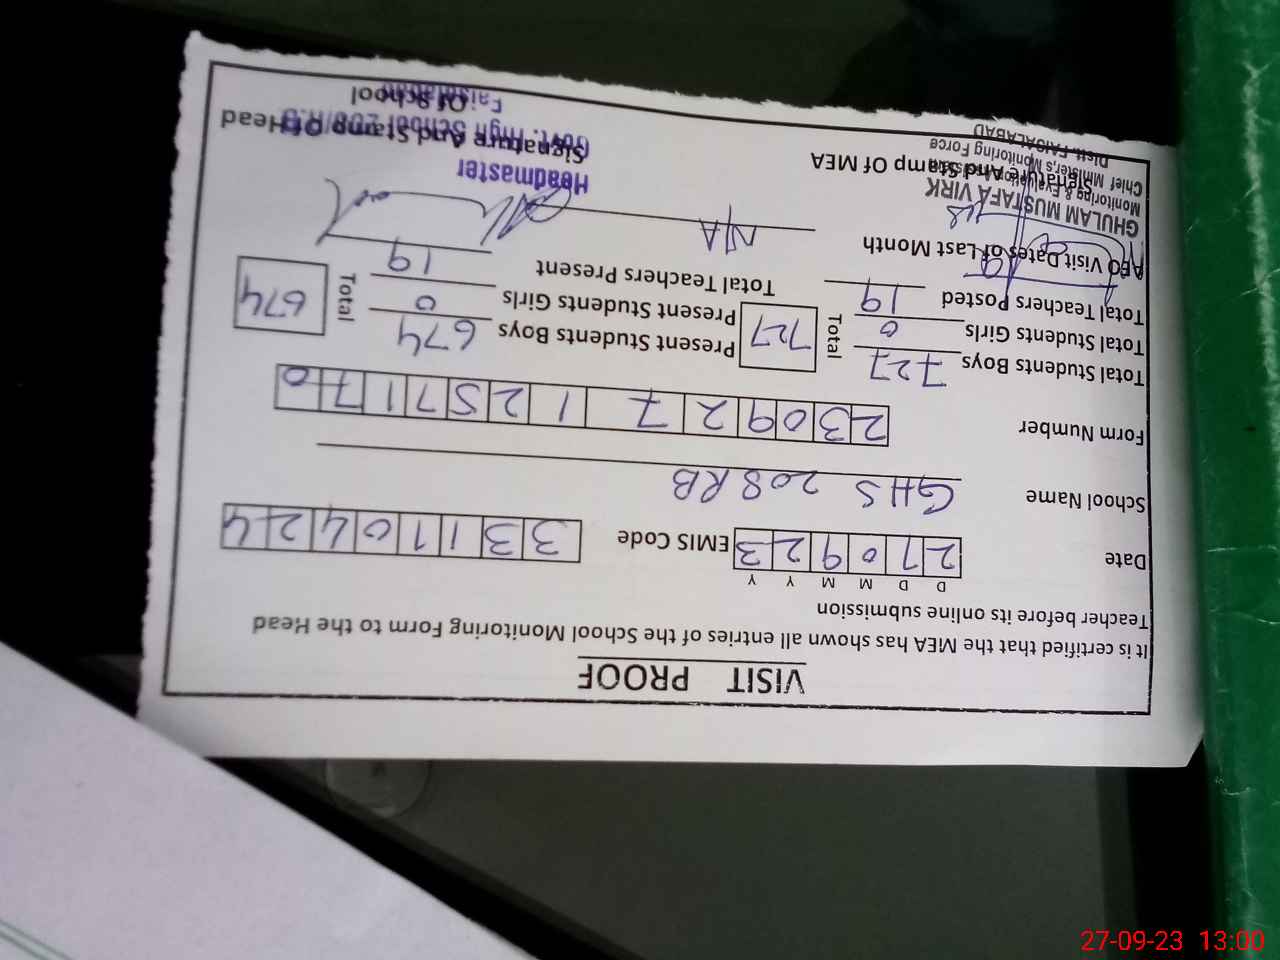 VISIT PROOF
It is certified that the MEA has shown all entries of the School Monitoring Form to the Head
Teacher before its online submission
D D M M Y Y
Date 270923 EMIS Code 33110424
School Name GHS 208 RB
Form Number 2309271257170
Total Students Boys 727 Present Students Boys 674
Total Students Girls 0 Total 727 Present Students Girls 0 Total 674
Total Teachers Posted 19 Total Teachers Present 19
AEO Visit Dates of Last Month N/A
GHULAM MUSTAFA VIRK
Monitoring & Evaluation
Chief Minister's Monitoring Force
Distt. FAISALABAD
Signature And Stamp Of MEA
Headmaster
Govt. High School 208/R.B
Faisalabad
Signature And Stamp Of Head
Of School
27-09-23 13:00